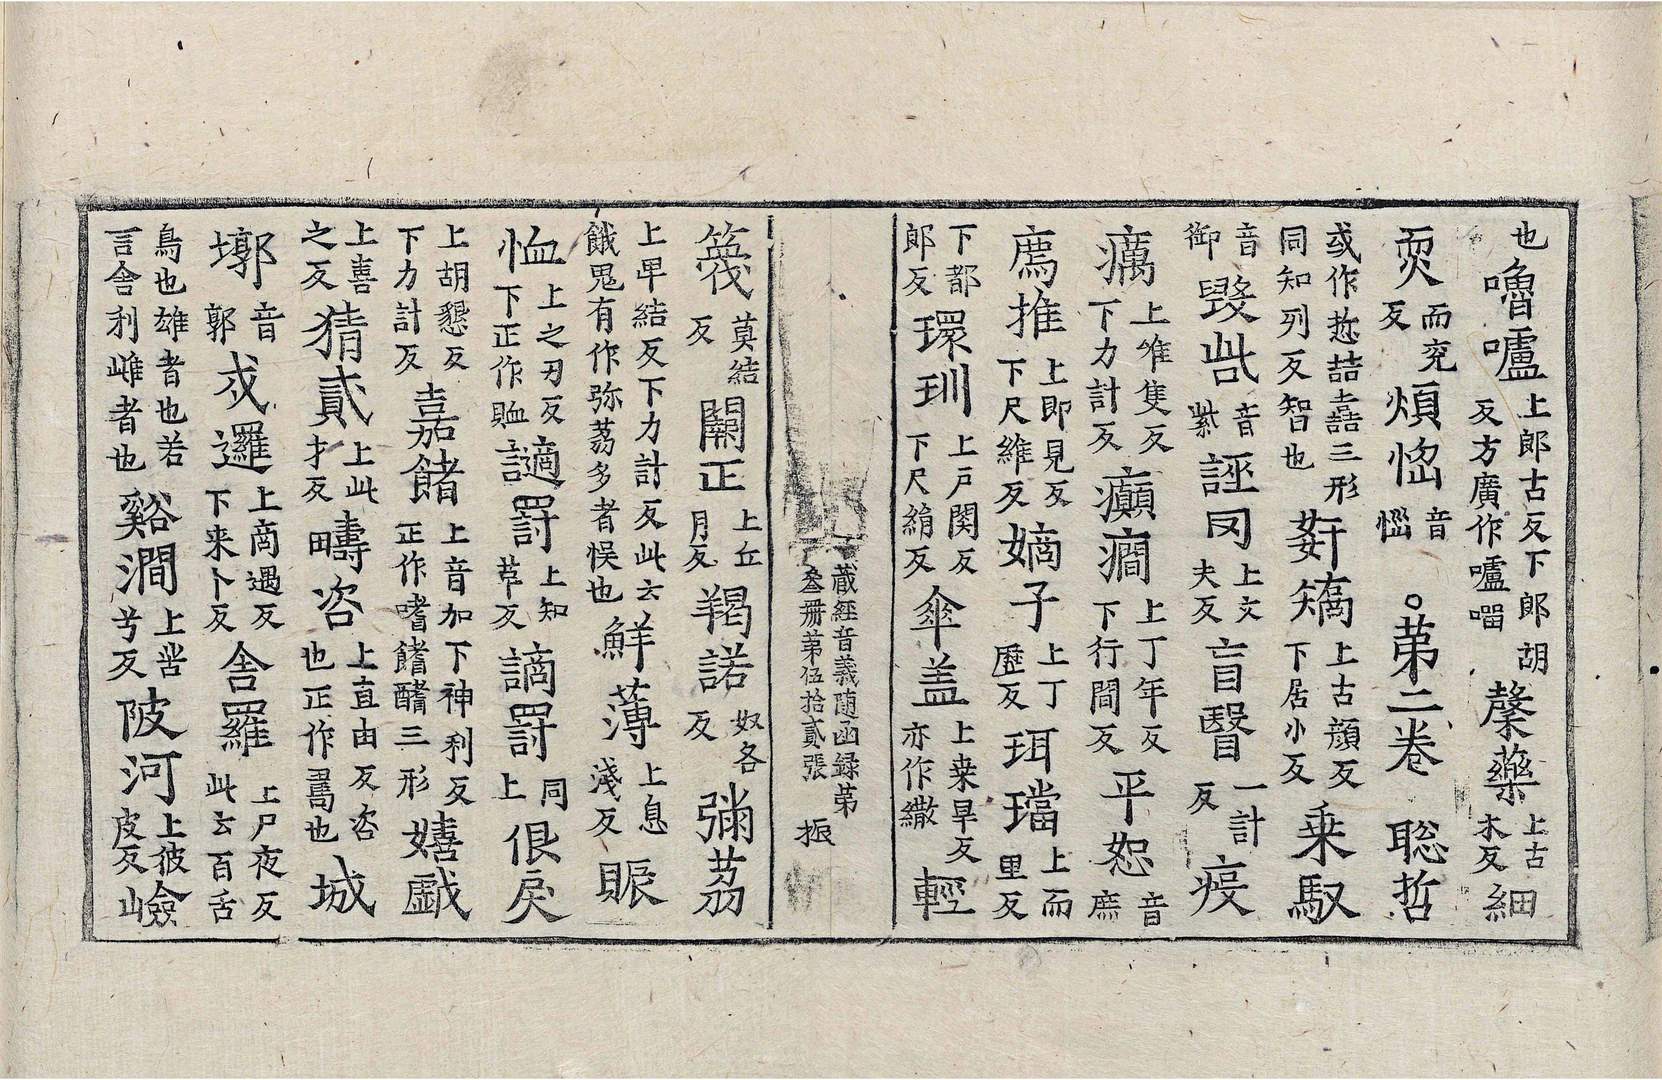 也嚕嚧上郎古反下郎胡反方廣作嚧藥上古木反細
耎而兖反煩惱音惱。第二卷聡哲
或作悊喆嚞三形同知列反智也姧矯上古顔反下居小反乗馭
音御毀呰音紫誣罔上文夫反盲瞖一計反疫
癘上唯隻反下力計反癲癇上丁年反下行間反平恕音庶
廌推上即見反下尺維反嫡子上丁歷反珥璫上而里反
下都郎反環玔上戸関反下尺絹反傘盖上桒早反亦作繖輕
蔵經音義随函録第叁册第伍拾貳張 振
篾莫結反闕正上丘月反羯諾奴各反弥荔
上卑結反下力計反此云餓鬼有作弥荔多者悮也鮮薄上息淺反賑
恤上之刃反下正作賉讁罸上知革反謫罸同上佷戾
上胡懇反下力計反嘉饍上音加下神利反正作嗜三形嬉戯
上喜之反猜貳上此才反疇咨上直由反咨也正作也城
墎音郭戍邏上商遇反下来卜反舎羅上尸夜反此云百舌
鳥也雄者也若言舎利雌者也谿澗上苦兮反陂河上彼皮反嶮